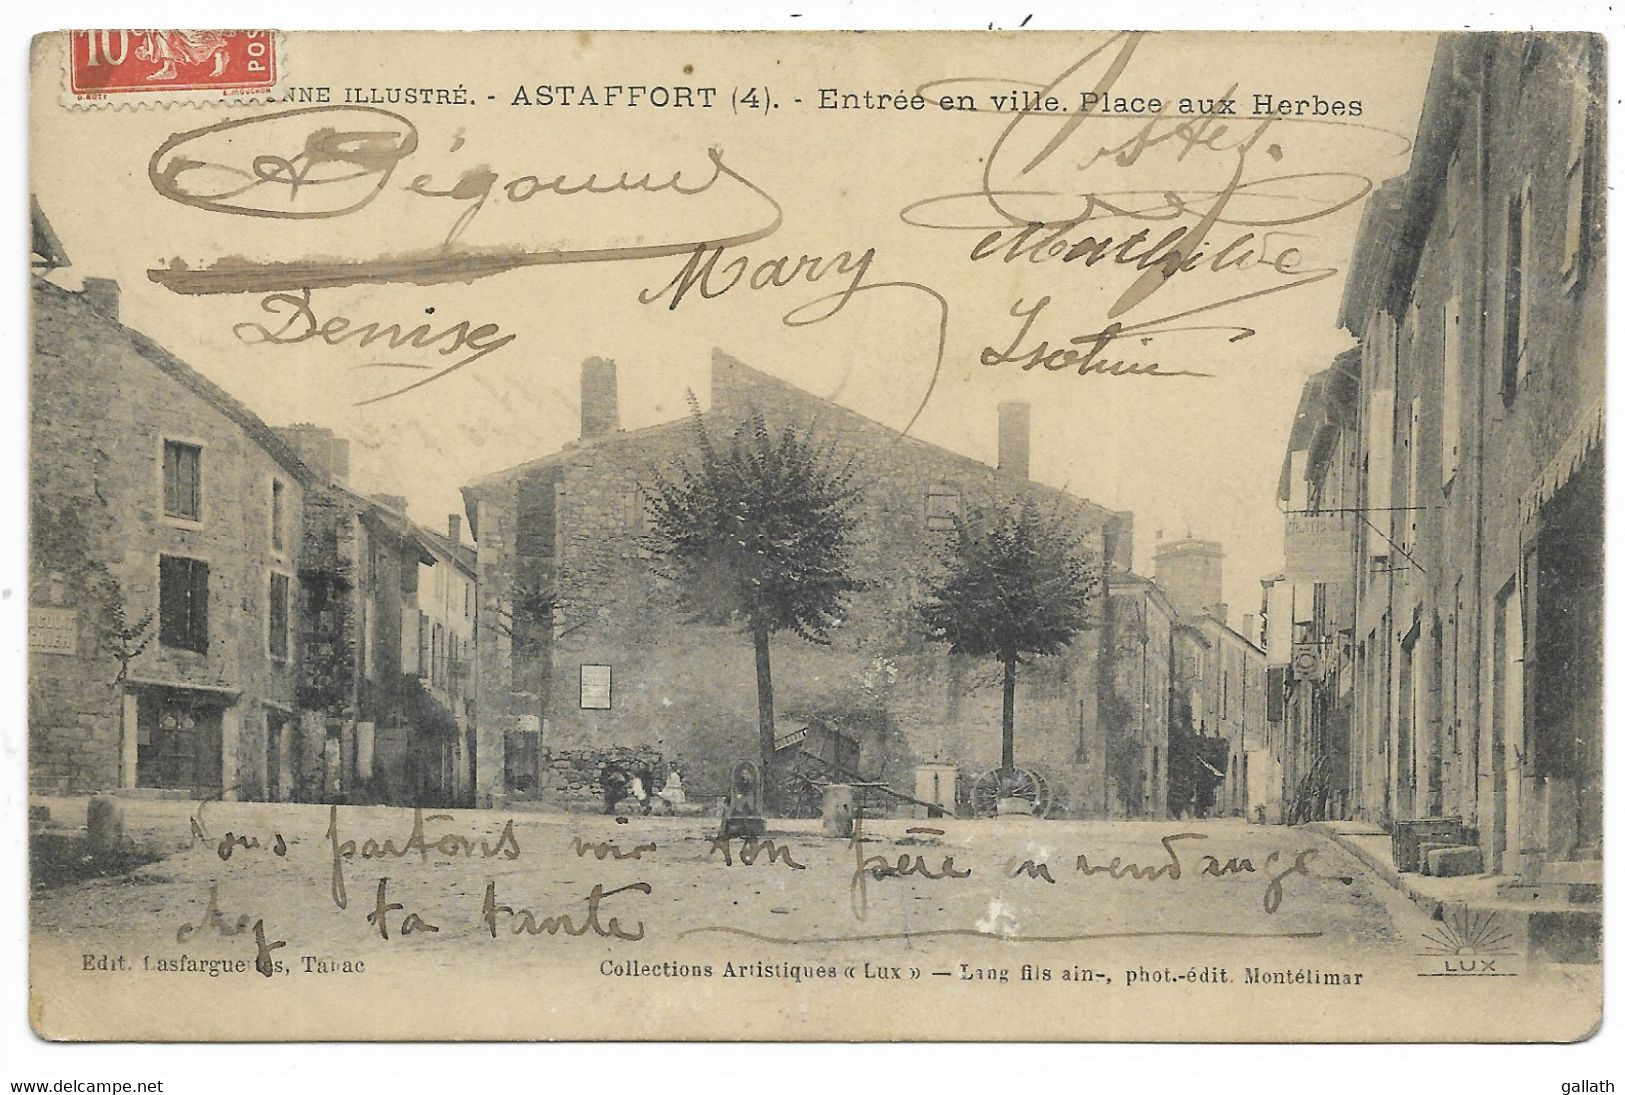 10 POS
O. ROTY E. MOUCHON
ONNE ILLUSTRÉ. - ASTAFFORT (4). - Entrée en ville. Place aux Herbes
Mary Mathilde
Denise
Nous partons voir ton père en vendange
chez ta tante
Edit. Lasfarguettes, Tabac
Collections Artistiques « Lux » — Lang fils ain-, phot.-édit. Montélimar
LUX
www.delcampe.net
gallath